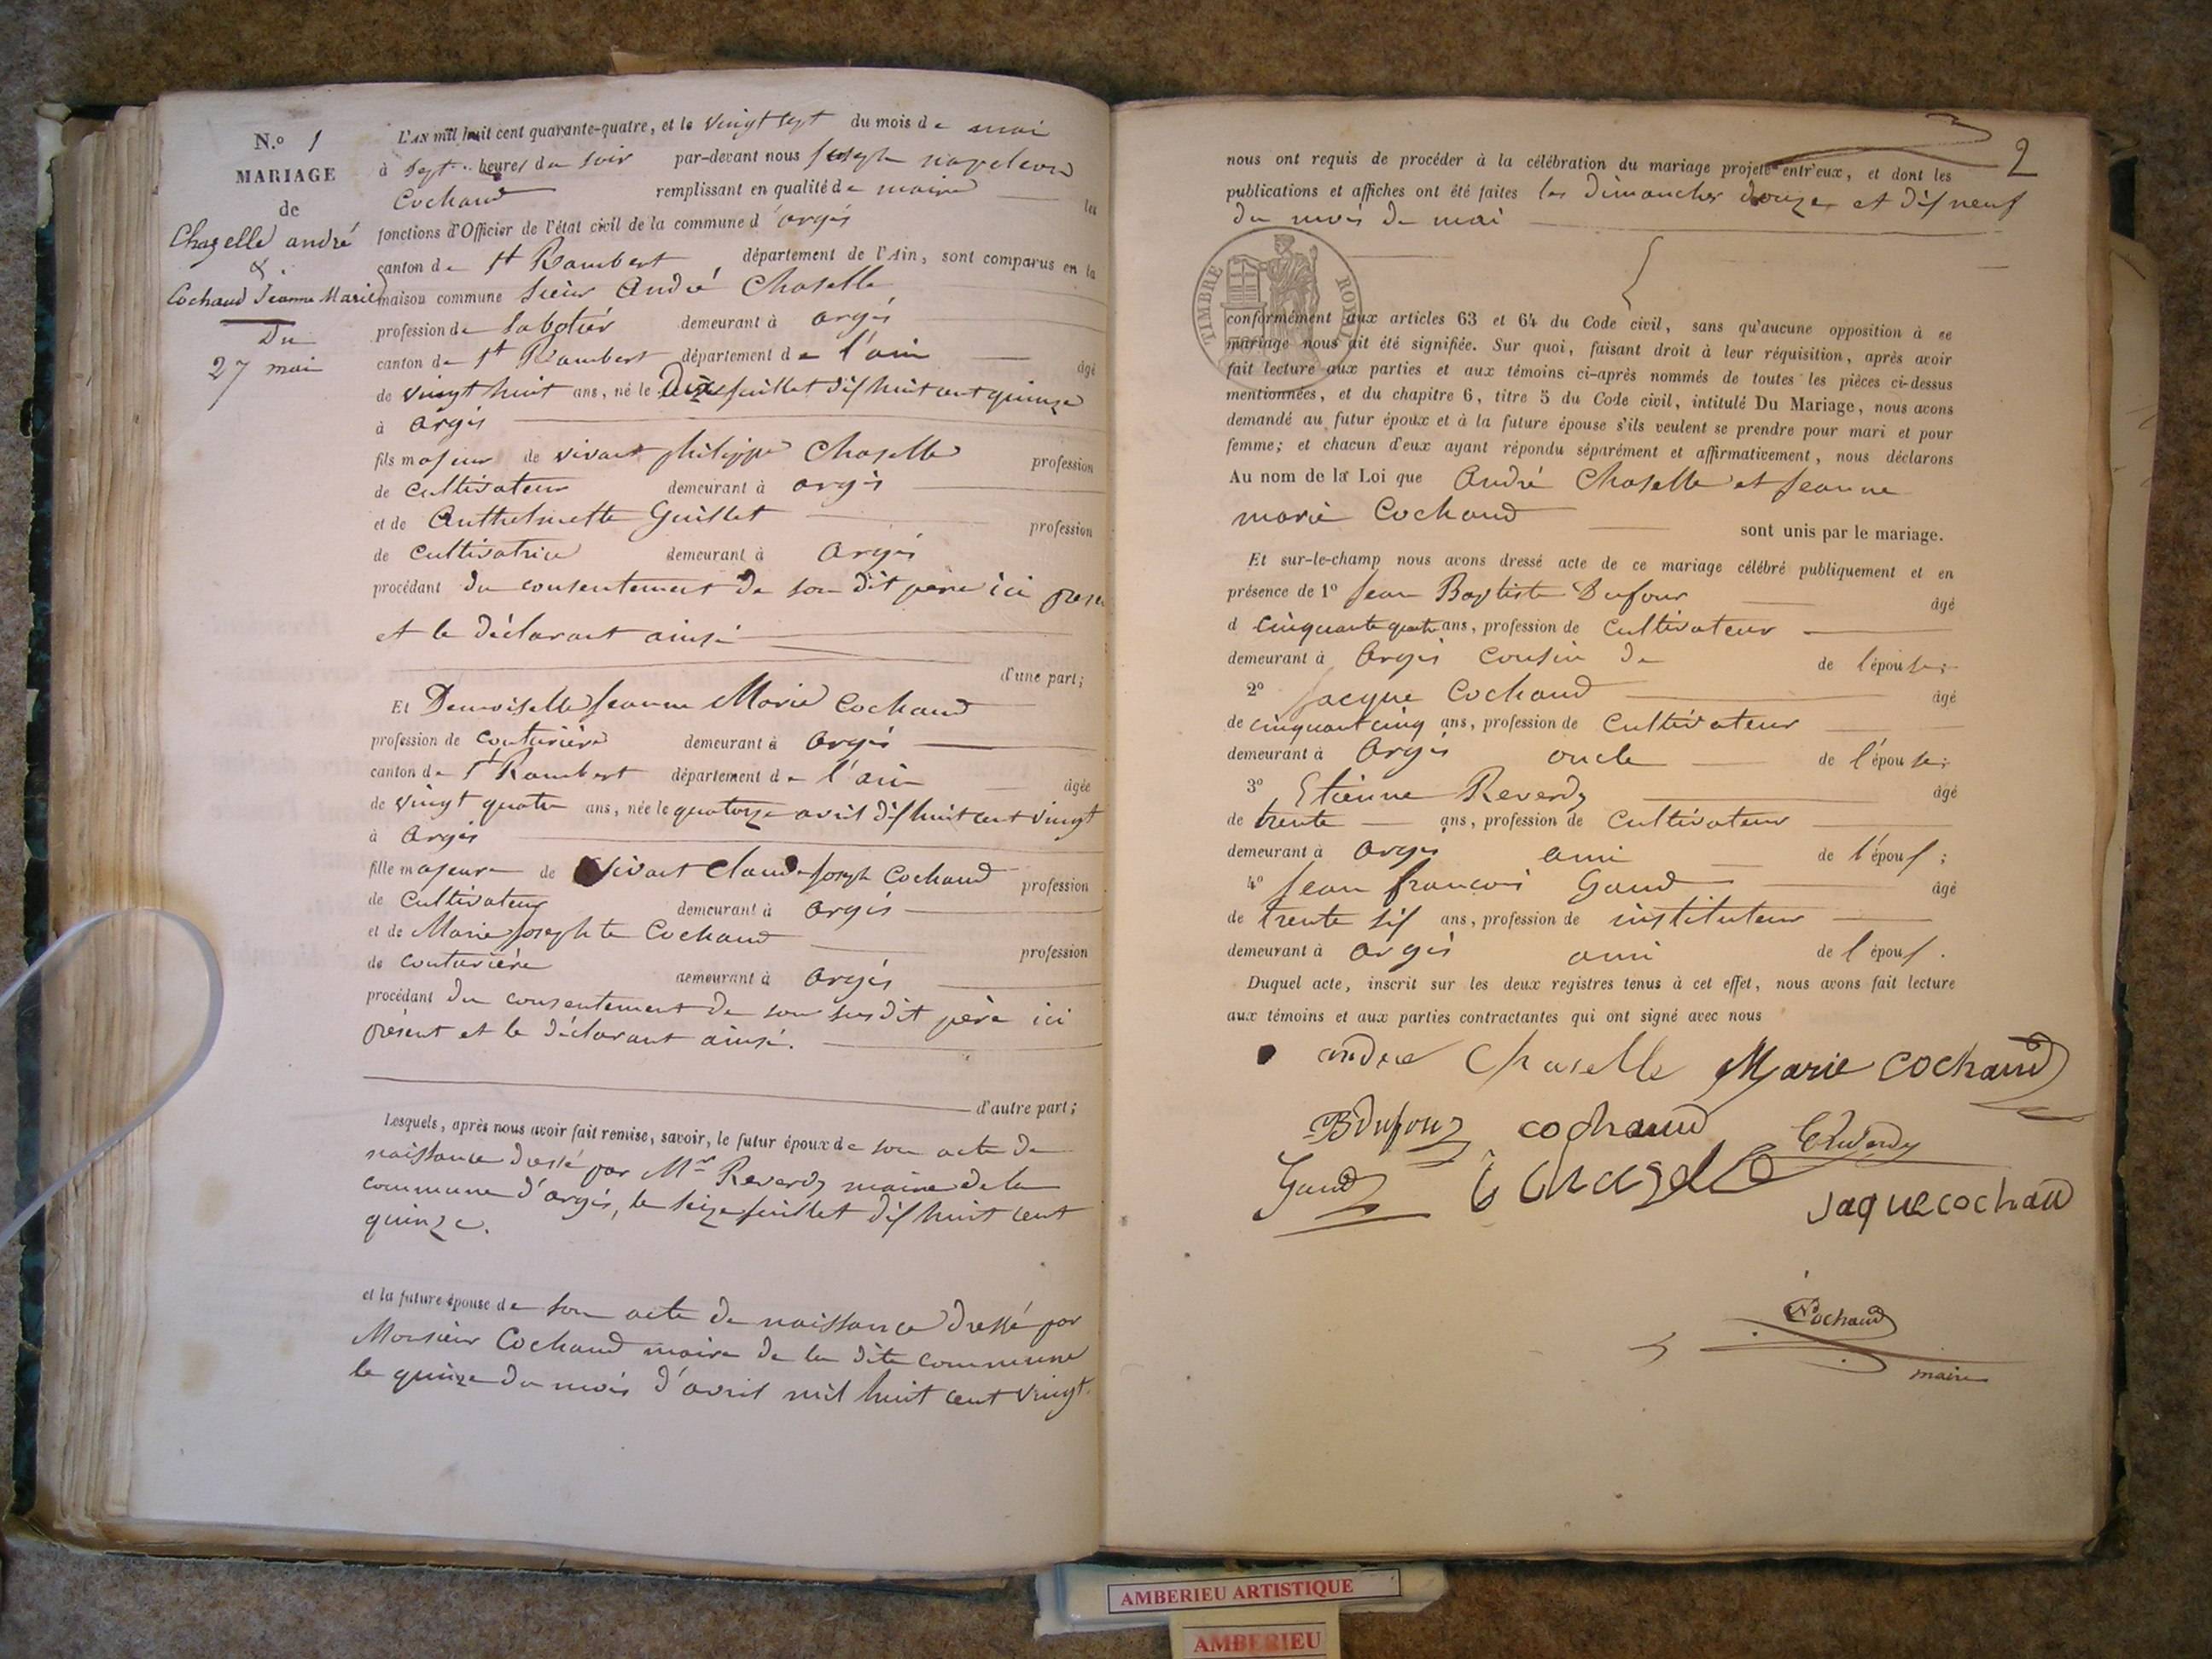 N.º 1
MARIAGE
de
Chazelle andré
&
Cochaud Jeanne Marie
Du
27 mai
L'AN mil huit cent quarante-quatre, et le vingt sept du mois de mai
à Sept heures du soir par-devant nous Joseph napoléon
Cochaud remplissant en qualité de maire les
fonctions d'Officier de l'état civil de la commune d'argis
canton de St Rambert département de l'Ain, sont comparus en la
maison commune Sieur André Chaselle
profession de Sabotier demeurant à argis
canton de St Rambert département de l'ain âgé
de vingt huit ans, né le juillet dix huit cent quinze
à argis
fils majeur de vivant philippe Chaselle profession
de Cultivateur demeurant à argis
et de Anthelmette Guillet profession
de Cultivatrice demeurant à argis
procédant du consentement de son dit père ici
et le déclarant ainsi
d'une part;
Et Demoiselle Jeanne Marie Cochaud
profession de Couturière demeurant à argis
canton de St Rambert département de l'ain âgée
de vingt quatre ans, née le quatorze avril dix huit cent vingt
à argis
fille majeure de vivant Claude Joseph Cochaud profession
de Cultivateur demeurant à argis
et de Marie Josephte Cochaud profession
de couturière demeurant à argis
procédant du consentement de son susdit père ici
présent et le déclarant ainsi.
d'autre part;
Lesquels, après nous avoir fait remise, savoir, le futur époux de son acte de
naissance dressé par Mr Reverdy maire de la
commune d'argis, le seize juillet dix huit cent
quinze.
et la future épouse de son acte de naissance dressé par
Monsieur Cochaud maire de la dite commune
le quinze du mois d'avril mil huit cent vingt.
2
nous ont requis de procéder à la célébration du mariage projeté entr'eux, et dont les
publications et affiches ont été faites les dimanches douze et dix neuf
du mois de mai
TIMBRE ROYAL
conformément aux articles 63 et 64 du Code civil, sans qu'aucune opposition à ce
mariage nous ait été signifiée. Sur quoi, faisant droit à leur réquisition, après avoir
fait lecture aux parties et aux témoins ci-après nommés de toutes les pièces ci-dessus
mentionnées, et du chapitre 6, titre 5 du Code civil, intitulé Du Mariage, nous avons
demandé au futur époux et à la future épouse s'ils veulent se prendre pour mari et pour
femme; et chacun d'eux ayant répondu séparément et affirmativement, nous déclarons
Au nom de la Loi que André Chaselle et Jeanne
marie Cochaud sont unis par le mariage.
Et sur-le-champ nous avons dressé acte de ce mariage célébré publiquement et en
présence de 1º Jean Baptiste Dufour âgé
d cinquante quatre ans, profession de Cultivateur
demeurant à Argis cousin de de l'épouse;
2º Jacque Cochaud âgé
de cinquant cinq ans, profession de Cultivateur
demeurant à Argis oncle de l'épouse;
3º Etienne Reverdy âgé
de trente ans, profession de Cultivateur
demeurant à Argis ami de l'époux;
4º Jean françois Gaud âgé
de trente six ans, profession de instituteur
demeurant à argis ami de l'époux.
Duquel acte, inscrit sur les deux registres tenus à cet effet, nous avons fait lecture
aux témoins et aux parties contractantes qui ont signé avec nous
andre Chaselle Marie cochaud
Bdufour cochaud
Gaud chazelle
Jaque cochau
Cochaud
maire
AMBERIEU ARTISTIQUE
AMBERIEU